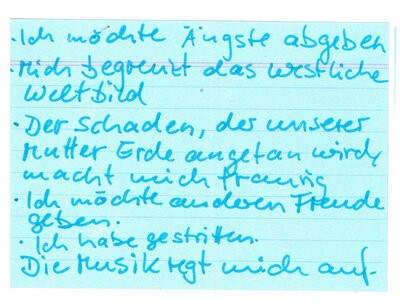 · Ich möchte Ängste abgeben
· Mich begrenzt das westliche
Weltbild
· Der Schaden, der unserer
Mutter Erde angetan wird,
macht mich traurig
· Ich möchte anderen Freude
geben.
· Ich habe gestritten.
Die Musik regt mich auf.